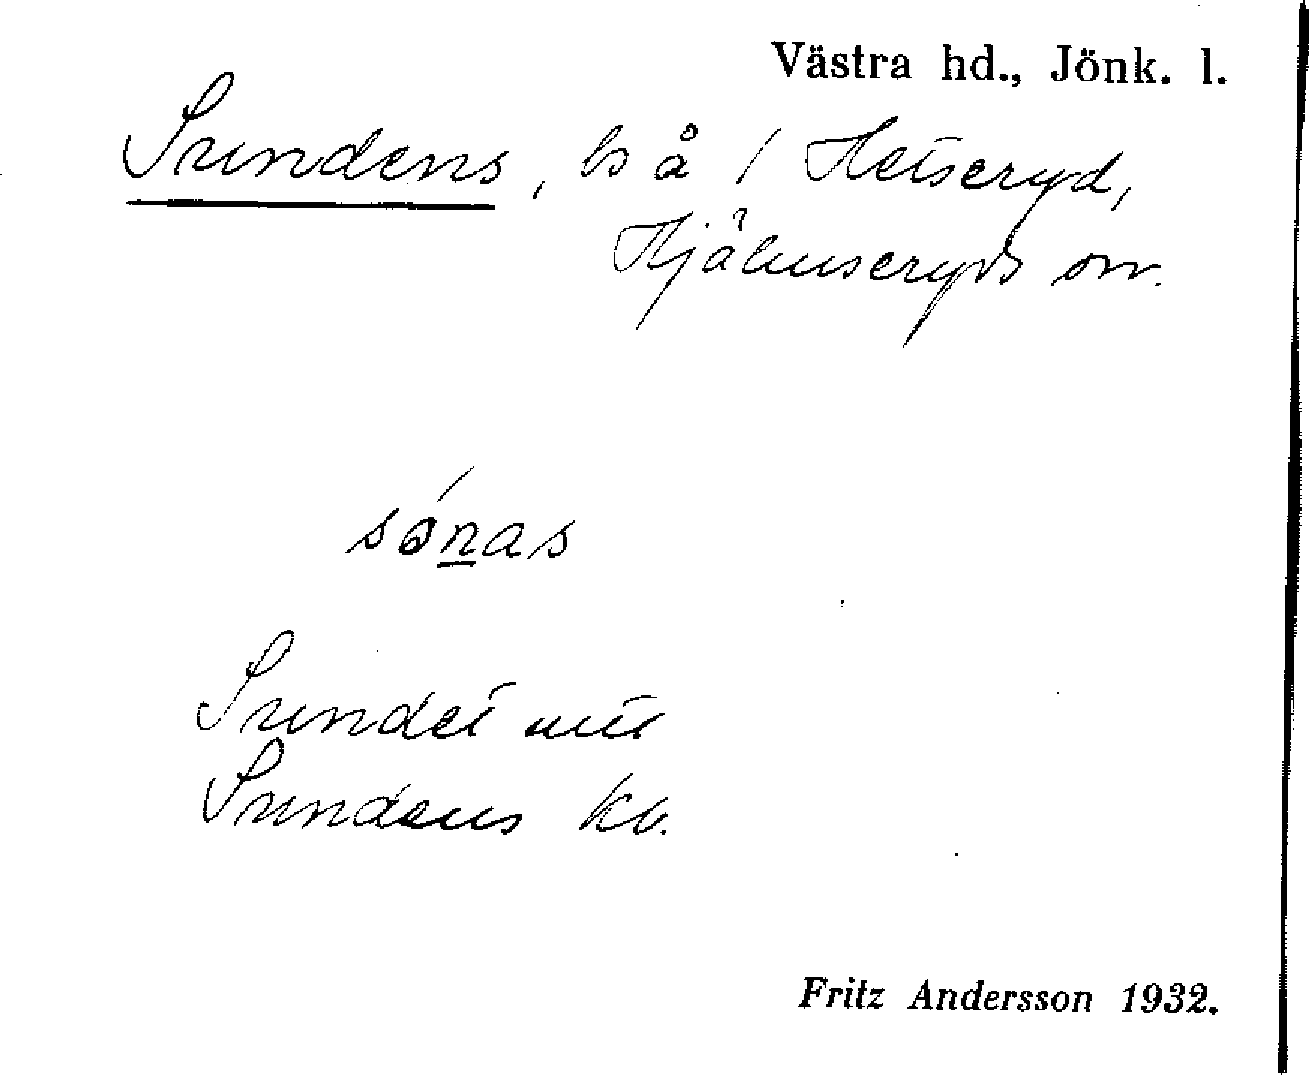 Västra hd., Jönk. l.
Sundens, å / Hetseryd,
Hjälmseryds sn.
sónas
Sundet
Sundens kb.
Fritz Andersson 1932.